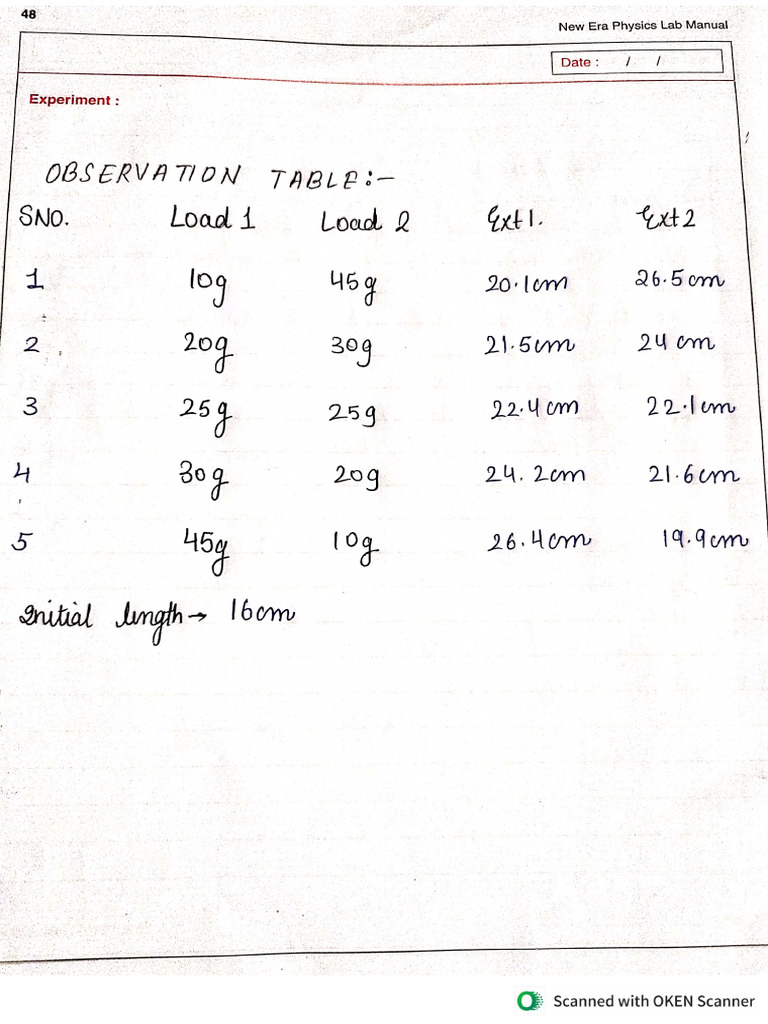 48
New Era Physics Lab Manual
Date : / /
Experiment :
OBSERVATION TABLE:-
SNO. Load 1 Load 2 Ext1. Ext2
1 10g 45g 20.1cm 26.5cm
2 20g 30g 21.5cm 24cm
3 25g 25g 22.4cm 22.1cm
4 30g 20g 24.2cm 21.6cm
5 45g 10g 26.4cm 19.9cm
Initial length→ 16cm
Scanned with OKEN Scanner